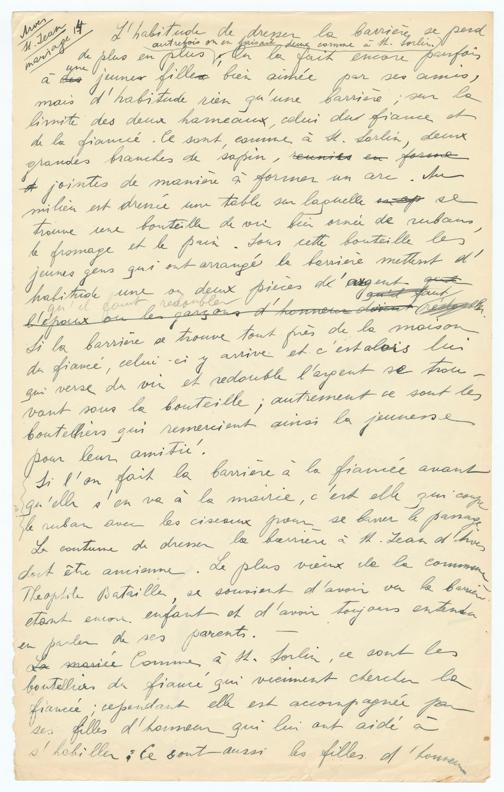 Arves
St. Jean
mariage 14
L'habitude de dresser la barrière se perd
autrefois on en faisait deux comme à St. Sorlin
de plus en plus ; on la fait encore parfois
à des une jeunes fille bien aimée par ses amis,
mais d'habitude rien qu'une barrière ; sur la
limite des deux hameaux, celui du fiancé et
de la fiancé. Ce sont, comme à St. Sorlin, deux
grandes branches de sapin, reunies en forme
jointes de manière à former un arc. Au
milieu est dressée une table sur laquelle se
trouve une bouteille de vin bien ornée de rubans,
le fromage et le pain. Sous cette bouteille les
jeunes gens qui ont arrangé la barrière mettent d'
habitude une ou deux pièces d'argent qu'il faut
qu'il faut redoubler
l'époux ou les garçons d'honneur doivent
Si la barrière se trouve tout près de la maison
du fiancé, celui-ci y arrive et c'est alors lui
qui verse du vin et redouble l'argent se trou-
vant sous la bouteille ; autrement ce sont les
boutelliers qui remercient ainsi la jeunesse
pour leur amitié.
Si l'on fait la barrière à la fiancée avant
qu'elle s'en va à la mairie, c'est elle qui coupe
le ruban avec les ciseaux pour se livrer le passage
La coutume de dresser la barrière à St. Jean d'Arves
doit être ancienne. Le plus vieux de la commune
Théophile Bataille, se souvient d'avoir vu la barrière
étant encore enfant et d'avoir toujours entendu
en parler de ses parents. —
La mariée Comme à St. Sorlin, ce sont les
boutelliers du fiancé qui viennent chercher la
fiancée ; cependant elle est accompagnée par
ses filles d'honneur qui lui ont aidé à
s'habiller : Ce sont aussi les filles d'honneur